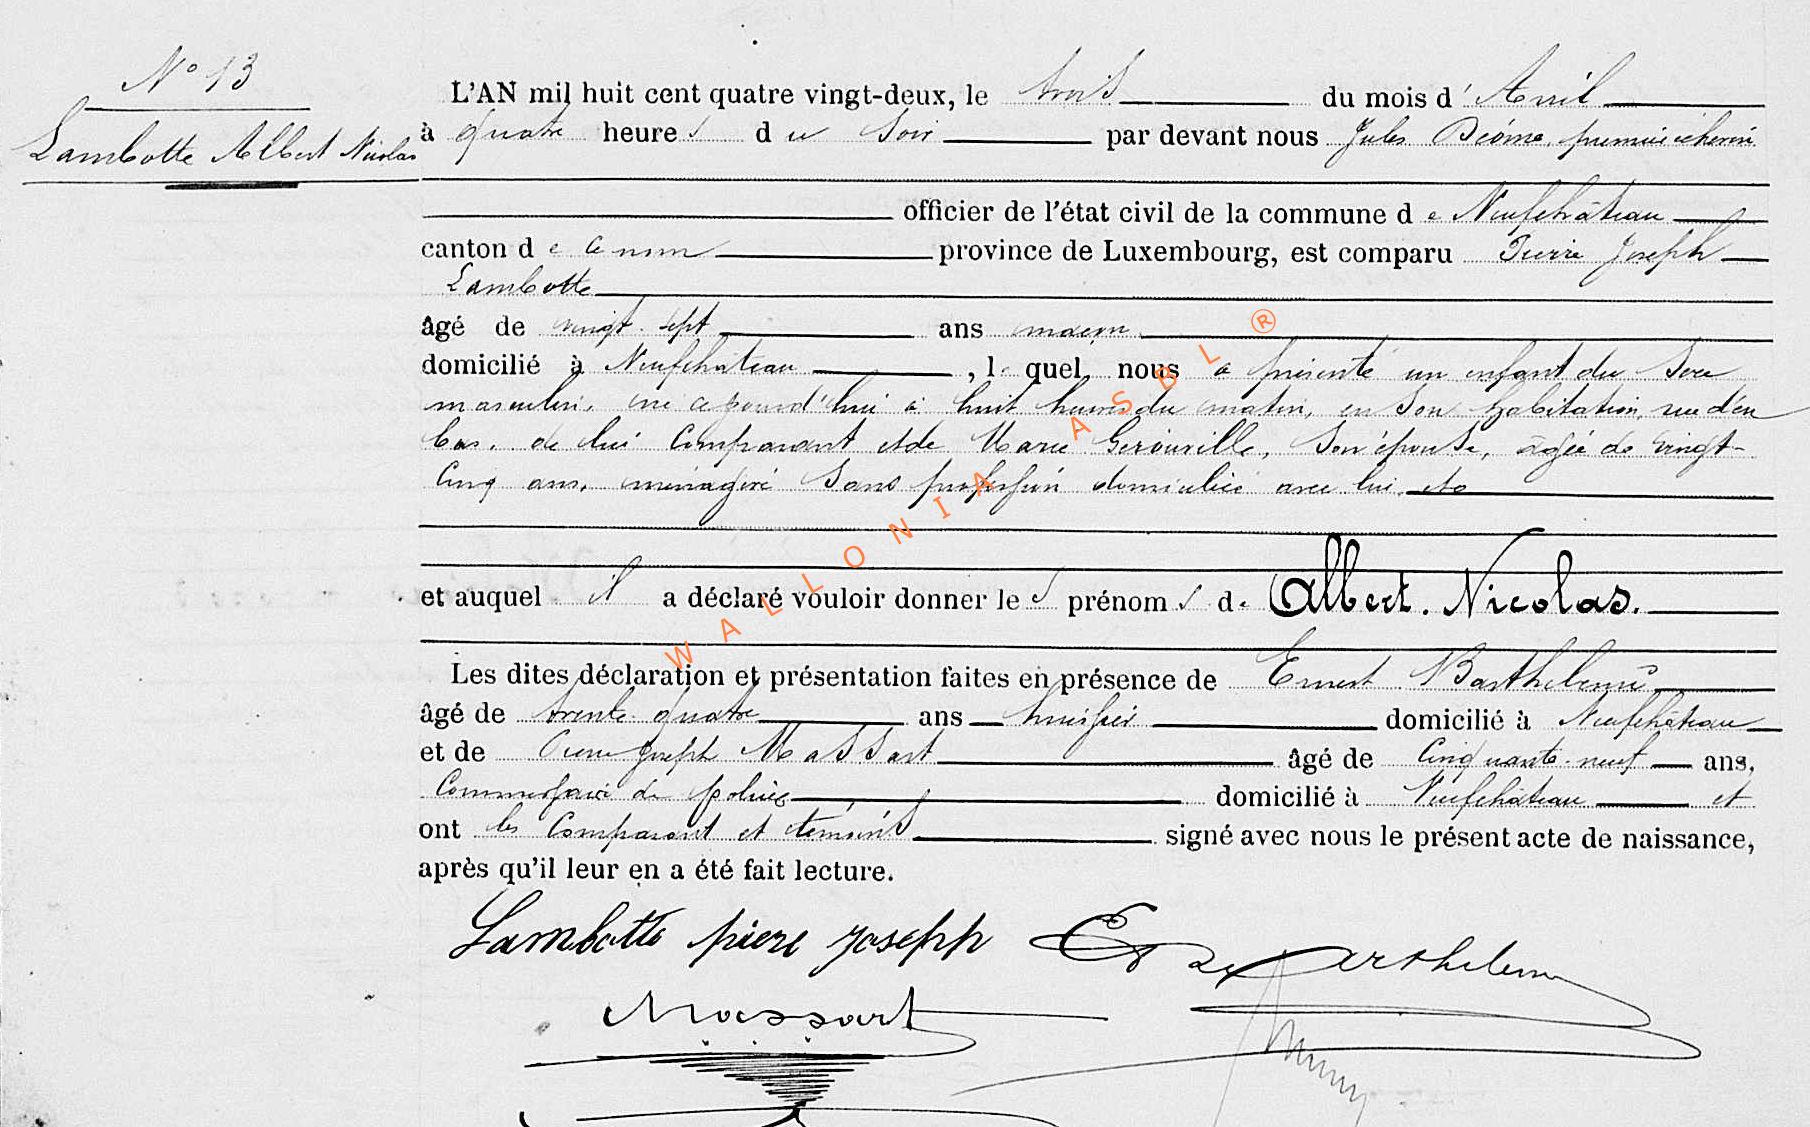 N° 13
Lambotte Albert Nicolas
L'AN mil huit cent quatre vingt-deux, le trois du mois d'Avril
à quatre heures du soir par devant nous Jules premier échevin
officier de l'état civil de la commune de Neufchâteau
canton de ce nom province de Luxembourg, est comparu Pierre Joseph
Lambotte
âgé de vingt-sept ans maçon
domicilié à Neufchâteau, lequel nous a présenté un enfant du sexe
masculin, né cejourd'hui à huit heures du matin, en son habitation, rue d'en
bas, de lui comparant et de Marie Gérouville, son épouse, âgée de vingt-
cinq ans, ménagère sans profession domiciliée avec lui
et auquel il a déclaré vouloir donner les prénoms de Albert. Nicolas.
Les dites déclaration et présentation faites en présence de Ernest Barthelemi
âgé de trente-quatre ans huissier domicilié à Neufchâteau
et de Pierre Joseph Massart âgé de cinquante-neuf ans,
Commissaire de police domicilié à Neufchâteau et
ont les comparant et témoins signé avec nous le présent acte de naissance,
après qu'il leur en a été fait lecture.
Lambotte piere joseph
Massart
WALLONIA ASBL ®